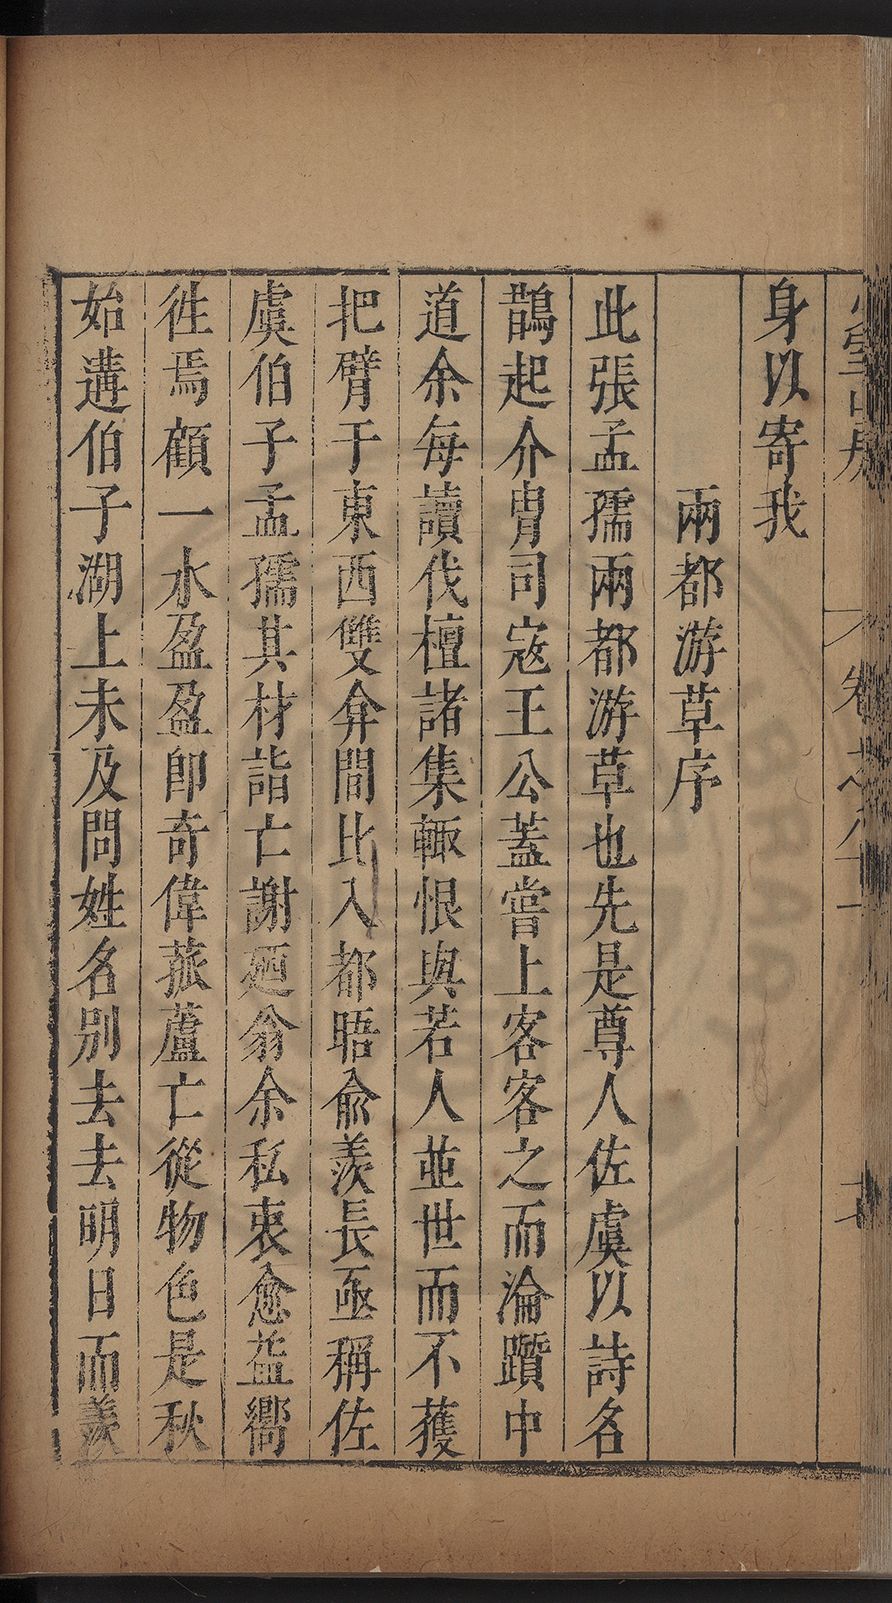 身以寄我
兩都游草序
此張孟孺兩都游草也先是尊人佐虞以詩名
鵲起介胄司寇王公蓋嘗上客客之而淪躓中
道余每讀伐檀諸集輙恨與若人並世而不獲
把臂于東西雙弇間比入都晤兪羨長亟稱佐
虞伯子孟孺其材詣亡謝廼翁余私衷愈益嚮
徃焉顧一水盈盈卽奇偉菰蘆亡從物色是秋
始遘伯子湖上未及問姓名別去去明日而羨